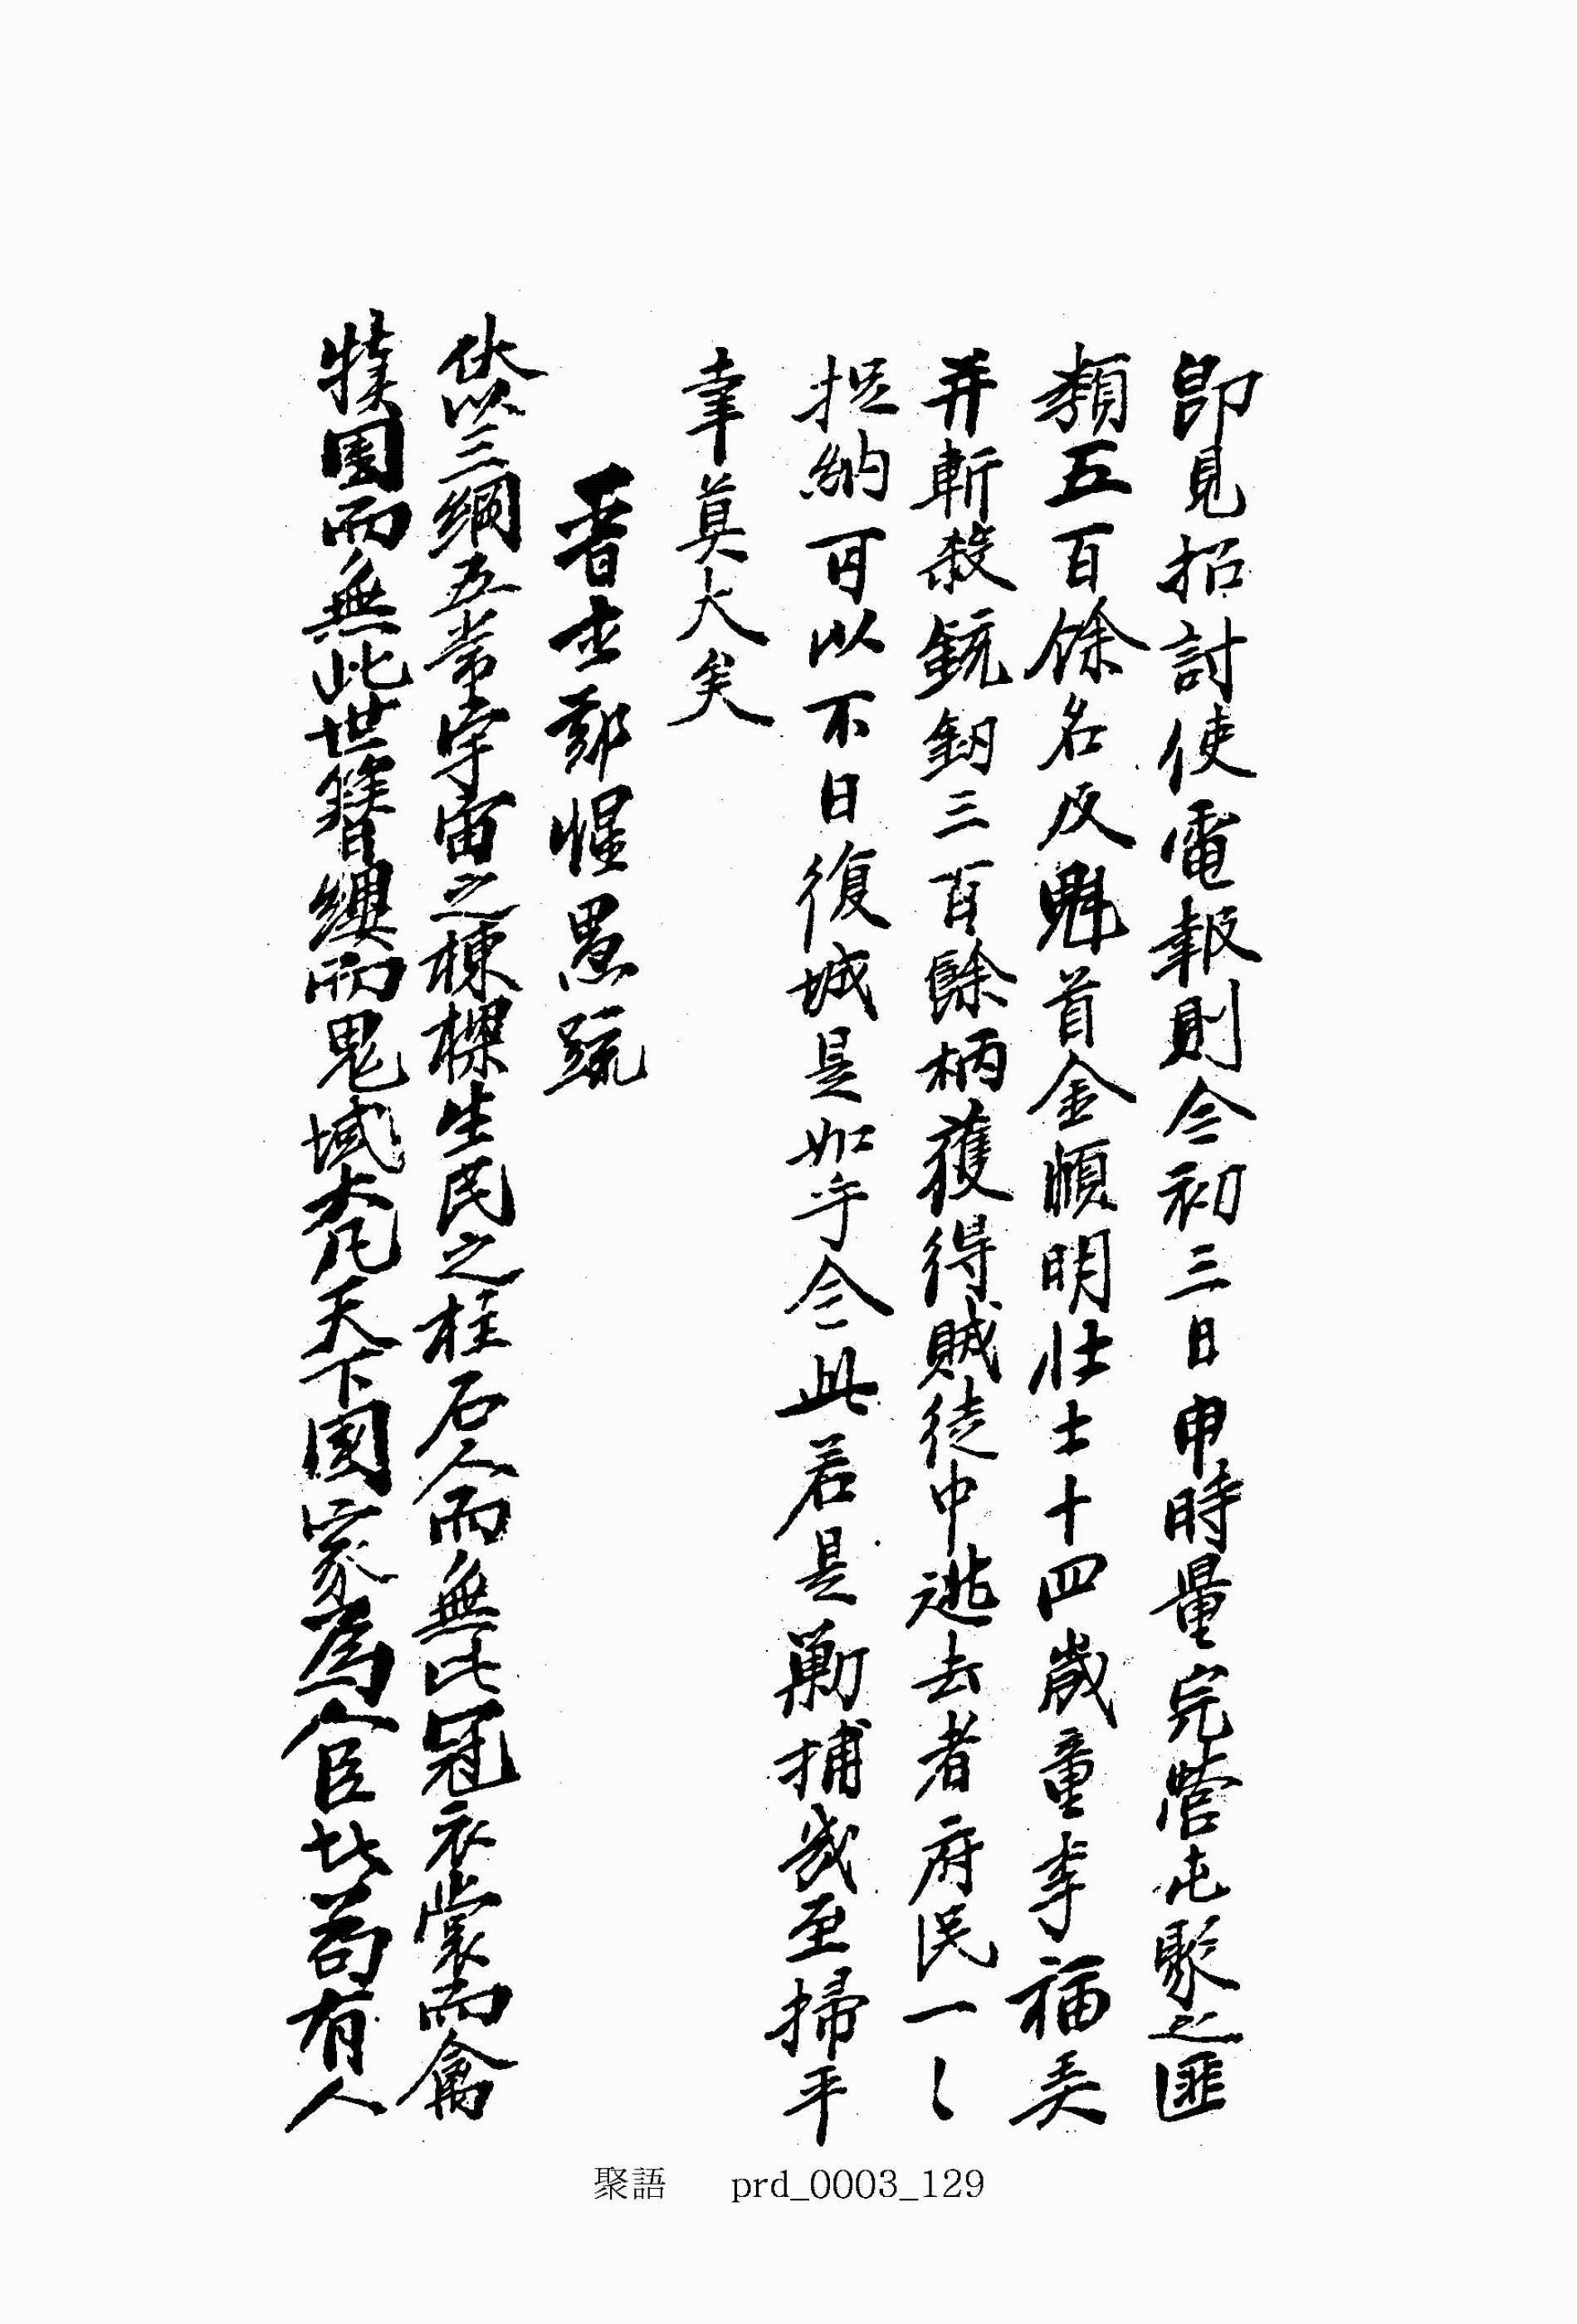 卽見招討使電報則今初三日申時量完營屯聚之匪
類五百餘名及魁首金順明壯士十四歲童李福美
并斬殺銃釰三百餘柄獲得賊徒中逃去者府民一〻
捉納可以不日復城是如乎今此若是勦捕幾至掃平
幸莫大矣
晋士鄭惺愚疏
伏以三綱五常宇宙之棟樑生民之柱石人而無此冠衣裳而禽
犢國而無此世簪纓而鬼域大凡天下國家爲人臣比苟有人
聚語 prd_0003_129